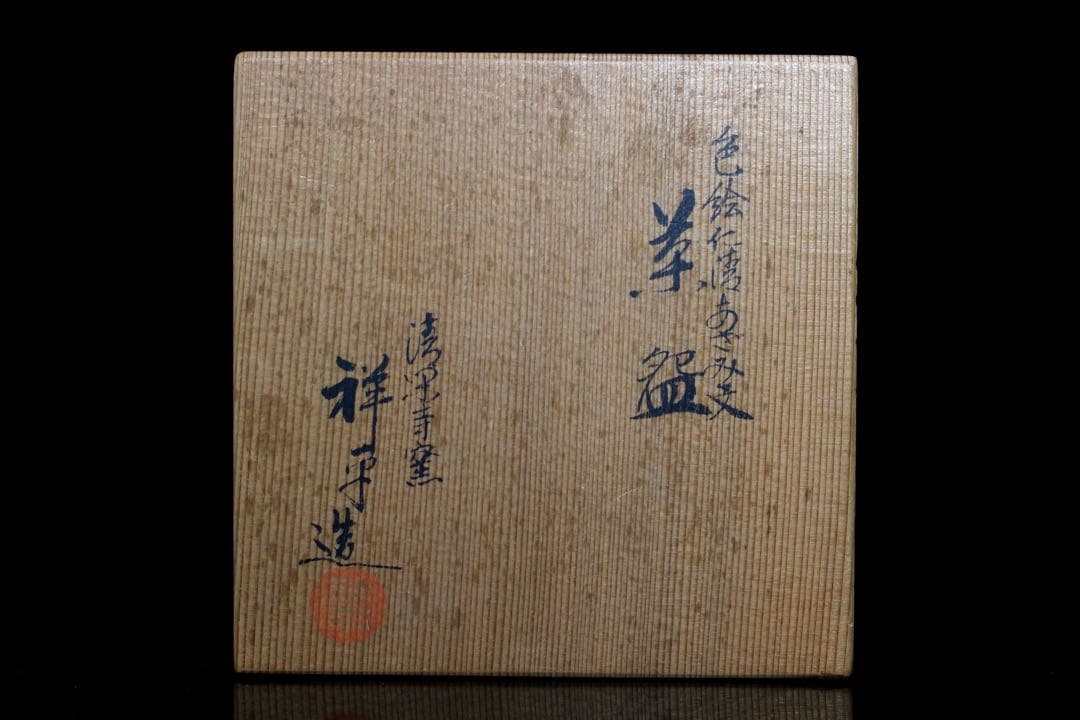 色絵仁清あざみ文
茶盌
清閑寺窯
祥平造